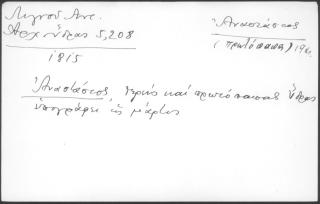 Λιγνού Αντ.
Αρχ. Ύδρας 5, 208
1815
Ἀναστάσιος
(πρωτόπαπας) 19
Ἀναστάσιος ἱερεύς καί πρωτόπαπας Ὕδρας
ὑπογράφει ὡς μάρτυς